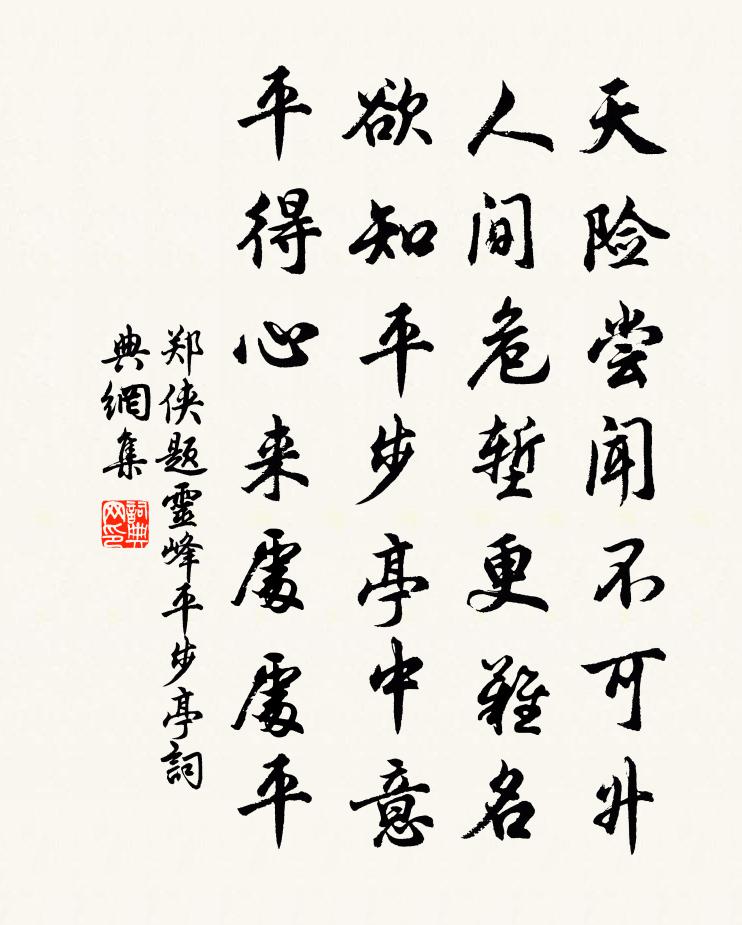 天险尝闻不可升
人间危堑更难名
欲知平步亭中意
平得心来處處平
郑侠题靈峰平步亭詞
典網集
詞典
网印